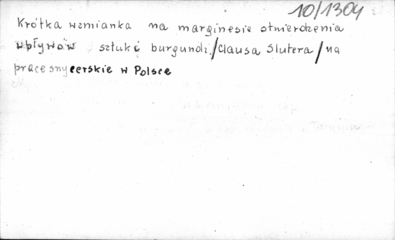 10/1304
Krótka wzmianka na marginesie stwierdzenia
wpływów sztuki burgundz./Clausa Slutera/na
prace snycerskie w Polsce